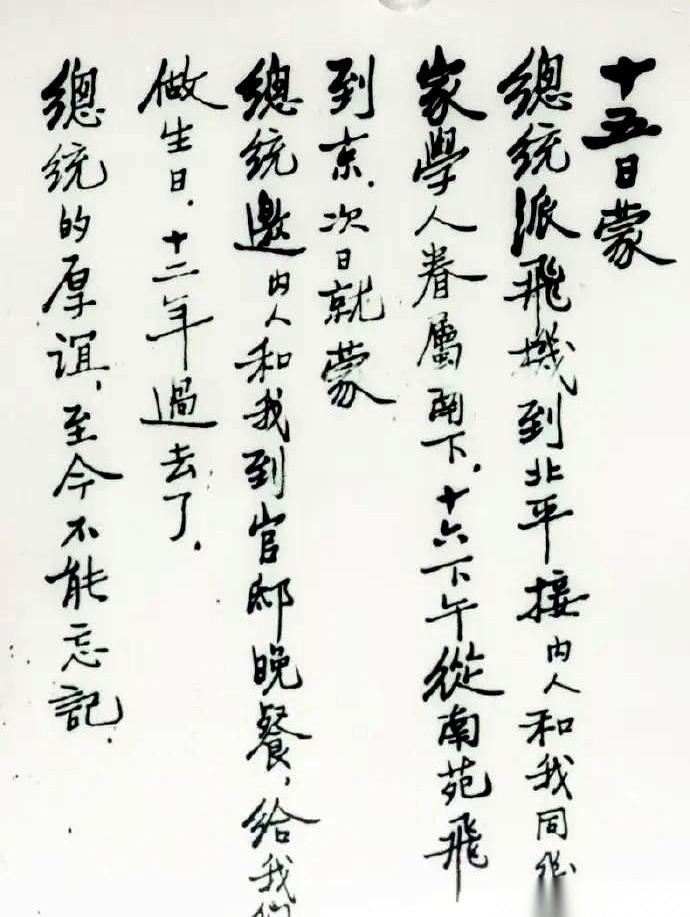 十五日蒙
總統派飛機到北平接內人和我同幾
家學人眷屬南下，十六下午從南苑飛
到京．次日就蒙
總統邀內人和我到官邸晚餐，給我們
做生日．十二年過去了．
總統的厚誼，至今不能忘記．